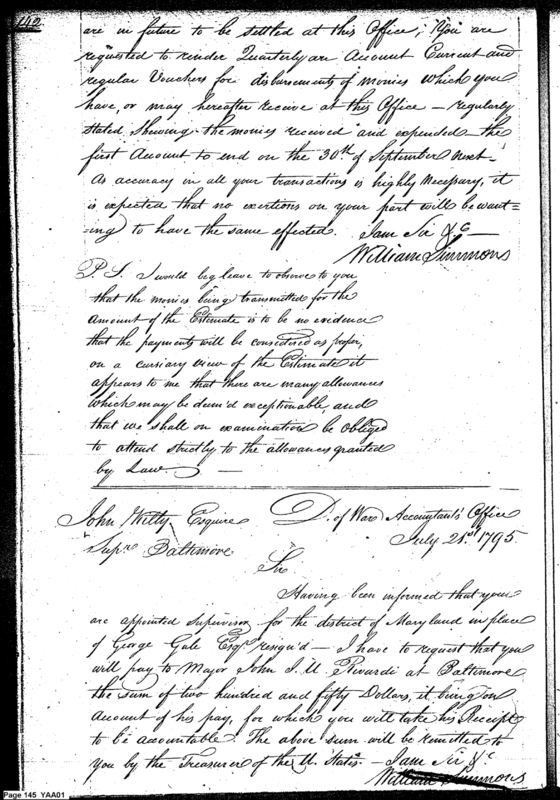 142
are in future to be settled at this Office; You are
requested to render Quarterly an Account Current and
regular Vouchers for disbursements of monies which you
have, or may hereafter receive at this Office – regularly
stated Shewing the monies received and expended – the
first Account to end on the 30th of September next –
As accuracy in all your transactions is highly Necessary, it
is expected that no exertions on your part will be want=
=ing to have the same effected. I am Sir &c –
William Simmons
P. S. I would beg leave to observe to you
that the monies being transmitted for the
amount of the Estimate is to be no evidence
that the payments will be considered as proper,
on a cursiary view of the Estimate it
appears to me that there are many allowances
which may be deem'd exceptionable, and
that we shall on examination be obliged
to attend strictly to the allowances granted
by Law. –
John Kilty Esquire D. of War Accountants Office
Supr. Baltimore July 21st 1795.
Sir
Having been informed that you
are appointed Supervisor for the district of Maryland in place
of George Gale Esqr. resign'd – I have to request that you
will pay to Major John J. U. Rivardi at Baltimore
the sum of two hundred and fifty Dollars, it being on
Account of his pay, for which you will take his Receipt
to be accountable. The above sum will be remitted to
you by the Treasurer of the U. States. – I am Sir &c
William Simmons
Page 145 YAA01